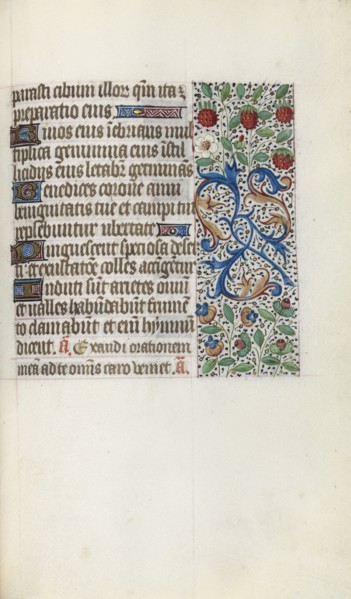 parasti cibum illor qm ita ē
preparatio eius
Rivos eius īebrians mul
tiplica germina eius ī stil
licidys eius letabr germinās
Benedices corone anni
benignitatis tue et campi tui
replebuntur ubertate
Pinguescent speciosa deser
ti et exultatōe colles accigentur
Induti sūt arietes oviū
et valles habūdabūt frumēto
clamabūt et em̄ hymnū
dicent. a. Exaudi orationem
meā ad te omis caro veniet. a.